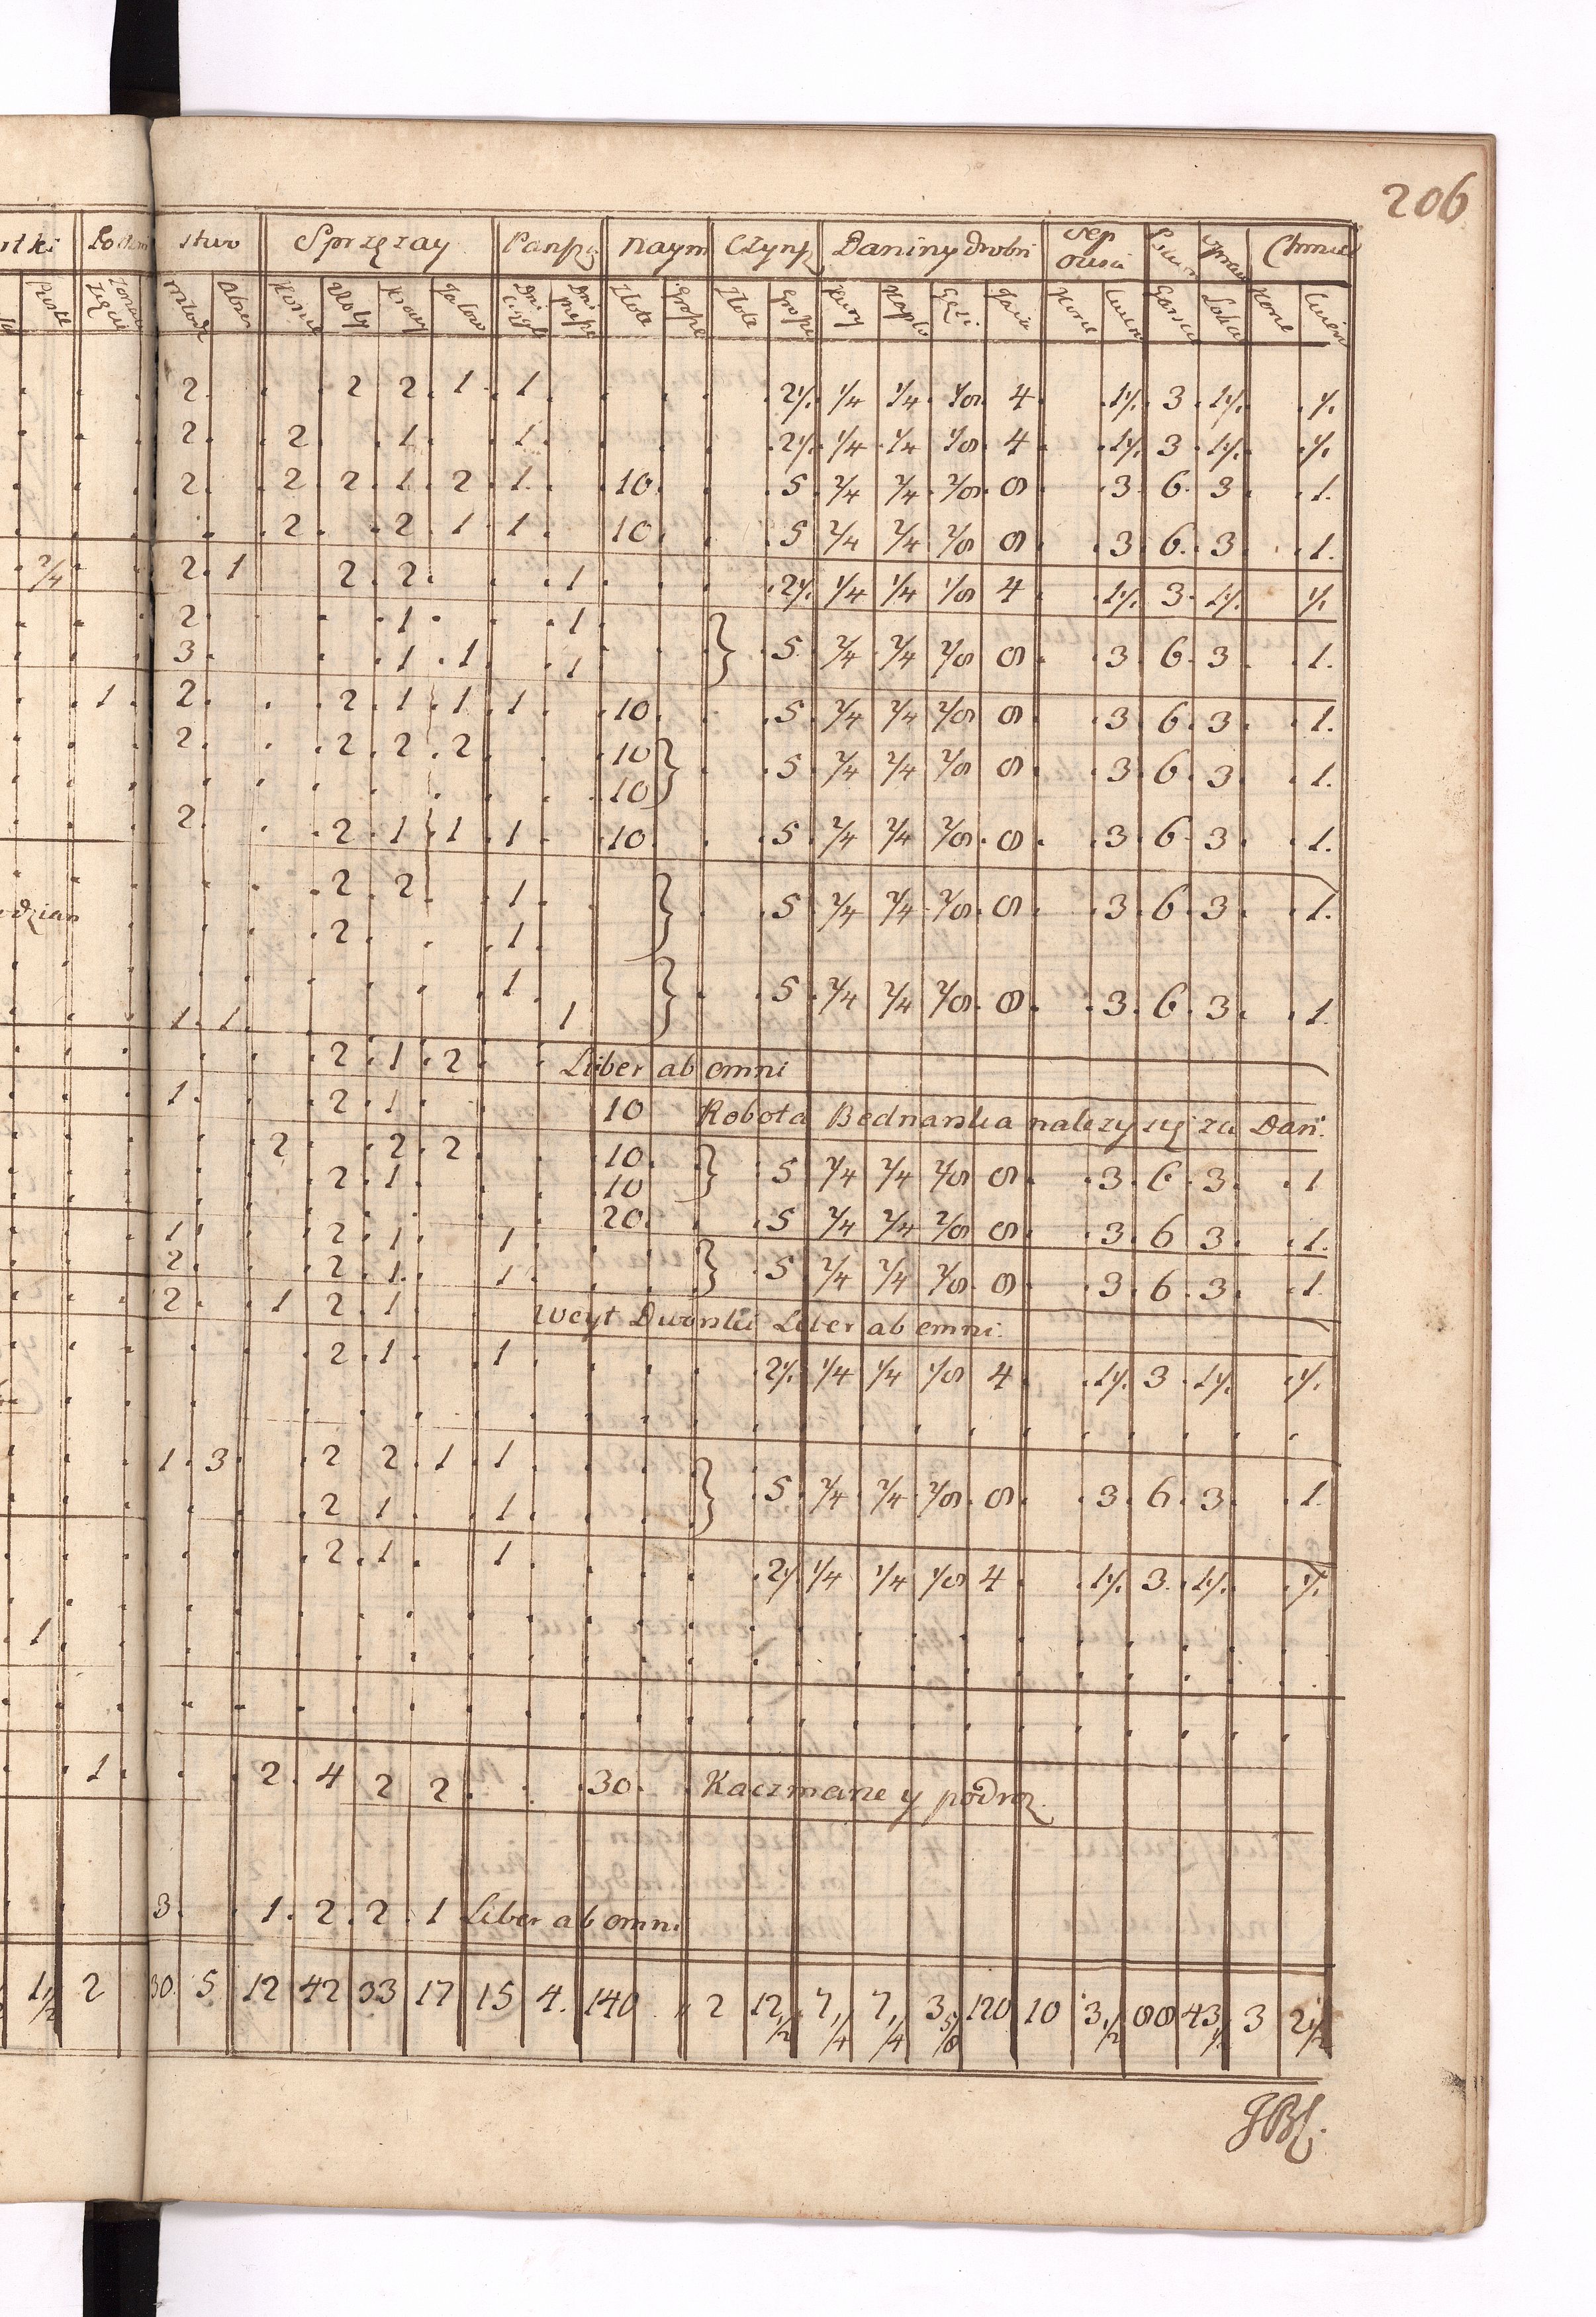 206
stwo Sprzęzay Panſz Naym Czynſz Daniny drobn Sep owsa Chmiel
Konie Woły Krowy Złote Grosze Złote Grosze Kury Kapł Gęsi Jaia Korce Garnce Korce
2 . . 2 2 1 1 . . . . 2½ ¼ ¼ ⅛ 4 . 1½ 3 1½ . ½
2 . 2 . 1 . 1 . . . . 2½ ¼ ¼ ⅛ 4 . 1½ 3 1½ . ½
2 . 2 2 1 2 1 . 10 . . 5 2/4 2/4 2/8 8 . 3 6 3 . 1
. . 2 . 2 1 1 . 10 . . 5 2/4 2/4 2/8 8 . 3 6 3 . 1
2/4 . 2 1 2 2 . . 1 . . . 2½ ¼ ¼ ⅛ 4 . 1½ 3 1½ ½
2 . . 1 . . 1
3 . . 1 1 . 1 . . } 5 2/4 2/4 2/8 8 . 3 6 3 . 1
1 2 . . 2 1 1 1 . 10 . . 5 2/4 2/4 2/8 8 . 3 6 3 . 1
2 . . 2 2 2 . . 10
10 } . 5 2/4 2/4 2/8 8 . 3 6 3 . 1
2 . . 2 1 1 1 . 10 . . 5 2/4 2/4 2/8 8 . 3 6 3 . 1
. . 2 2 . 1 . .
dzian . . 2 . . 1 . } . 5 2/4 2/4 2/8 8 . 3 6 3 . 1
. . . . . 1 .
1 1 . 1 } . 5 2/4 2/4 2/8 8 . 3 6 3 . 1
. . 2 1 2 . . Liber ab omni
1 . 2 1 . . 10 Robota Bednarska nalezy się za Dań
. . 2 . 2 2 . 10
. . 2 1 . . 10 } 5 2/4 2/4 2/8 8 . 3 6 3 . 1
. . . . . 20 . 5 2/4 2/4 2/8 8 . 3 6 3 . 1
1 . 2 1 . 1 .
2 . 2 1 . 1 . } 5 2/4 2/4 2/8 8 . 3 6 3 . 1
2 . 1 2 1 . Woyt Dworski Liber ab omni
. . 2 1 . 1 . . . . 2½ ¼ ¼ ⅛ 4 . 1½ 3 1½ . ½
1 3 . 2 2 1 1 .
. . 2 1 . 1 . } 5 2/4 2/4 2/8 8 . 3 6 3 . 1
. . 2 1 . 1 . . . . 2½ ¼ ¼ ⅛ 4 . 1½ 3 1½ . ½
1
1 . . 2 4 2 2 . . 30 .
3 . 1 2 2 1 Liber ab omni
1½ 2 30 5 12 42 33 17 15 4 140 „ 2 12½ 7¼ 7¼ 3⅝ 120 10 3½ 88 43½ 3 2½